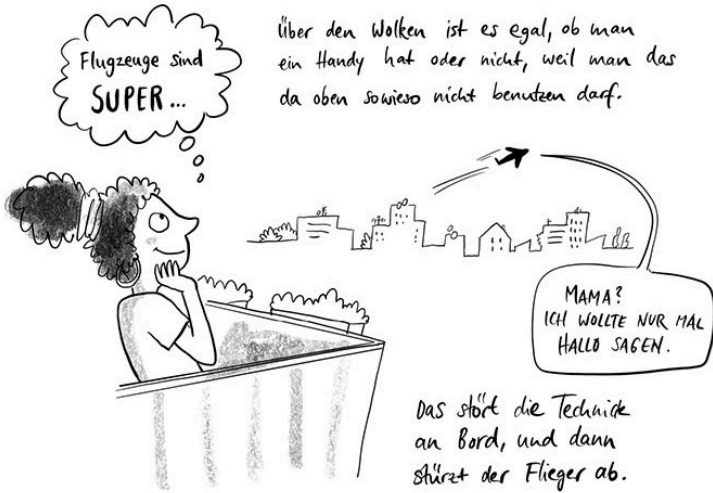 Flugzeuge sind
SUPER...
Über den Wolken ist es egal, ob man
ein Handy hat oder nicht, weil man das
da oben sowieso nicht benutzen darf.
MAMA?
ICH WOLLTE NUR MAL
HALLO SAGEN.
Das stört die Technik
an Bord, und dann
stürzt der Flieger ab.